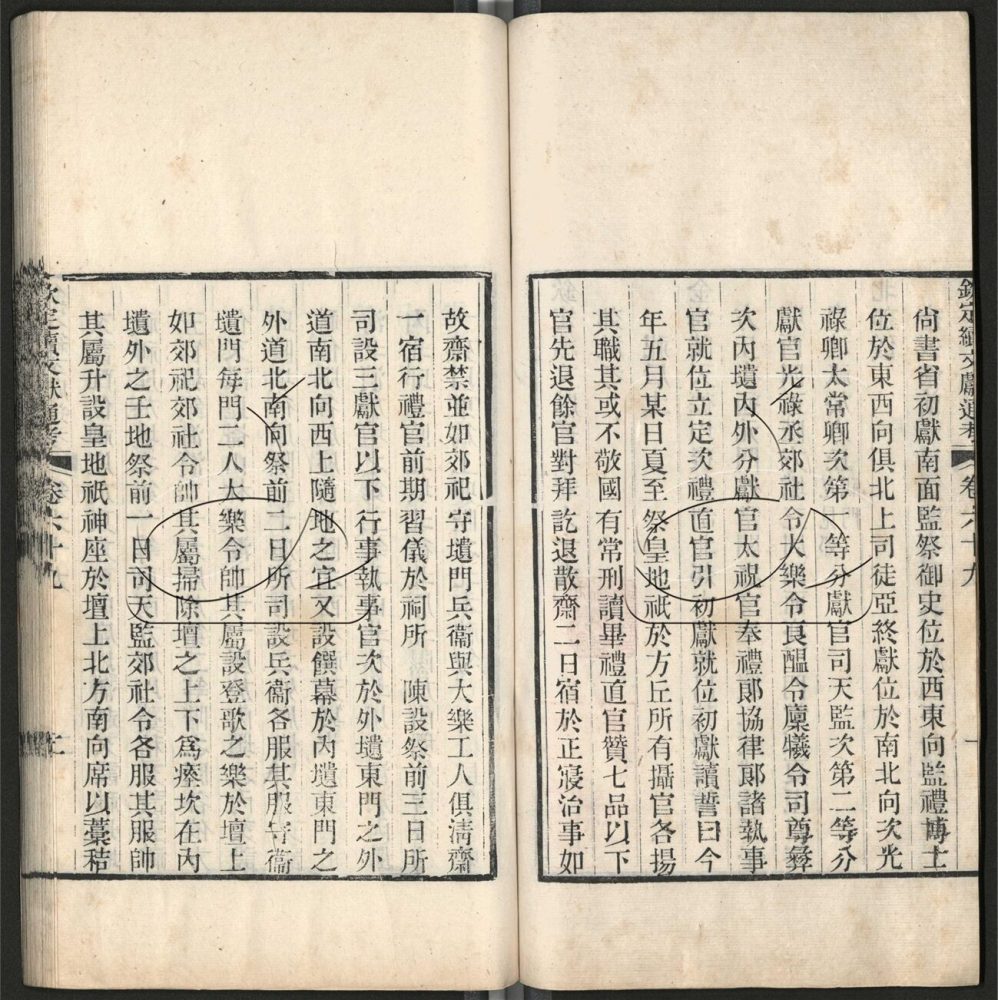 欽定續文獻通考 卷六十九 一
尙書省初獻南面監祭御史位於西東向監禮博士
位於東西向俱北上司徒亞終獻位於南北向次光
祿卿太常卿次第一等分獻官司天監次第二等分
獻官光祿丞郊社令大樂令良醞令廩犧令司尊彝
次內壝內外分獻官太祝官奉禮郎協律郎諸執事
官就位立定次禮直官引初獻就位初獻讀誓曰今
年五月某日夏至祭皇地祇於方丘所有攝官各揚
其職其或不敬國有常刑讀畢禮直官贊七品以下
官先退餘官對拜訖退散齋二日宿於正寢治事如
故齋禁並如郊祀守壝門兵衞與大樂工人俱淸齋
一宿行禮官前期習儀於祠所 陳設祭前三日所
司設三獻官以下行事執事官次於外壝東門之外
道南北向西上隨地之宜又設饌幕於內壝東門之
外道北南向祭前二日所司設兵衞各服其服守衞
壝門每門二人大樂令帥其屬設登歌之樂於壇上
如郊祀郊社令帥其屬掃除壇之上下爲瘞坎在內
壝外之壬地祭前一日司天監郊社令各服其服帥
其屬升設皇地祇神座於壇上北方南向席以藁秸
欽定續文獻通考 卷六十九